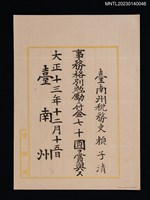 MNTL20230140046
臺南州稅務吏 楨子清
事務格別勉勵付金七十圓ヲ賞與ス
大正十三年十二月十五日
臺南州